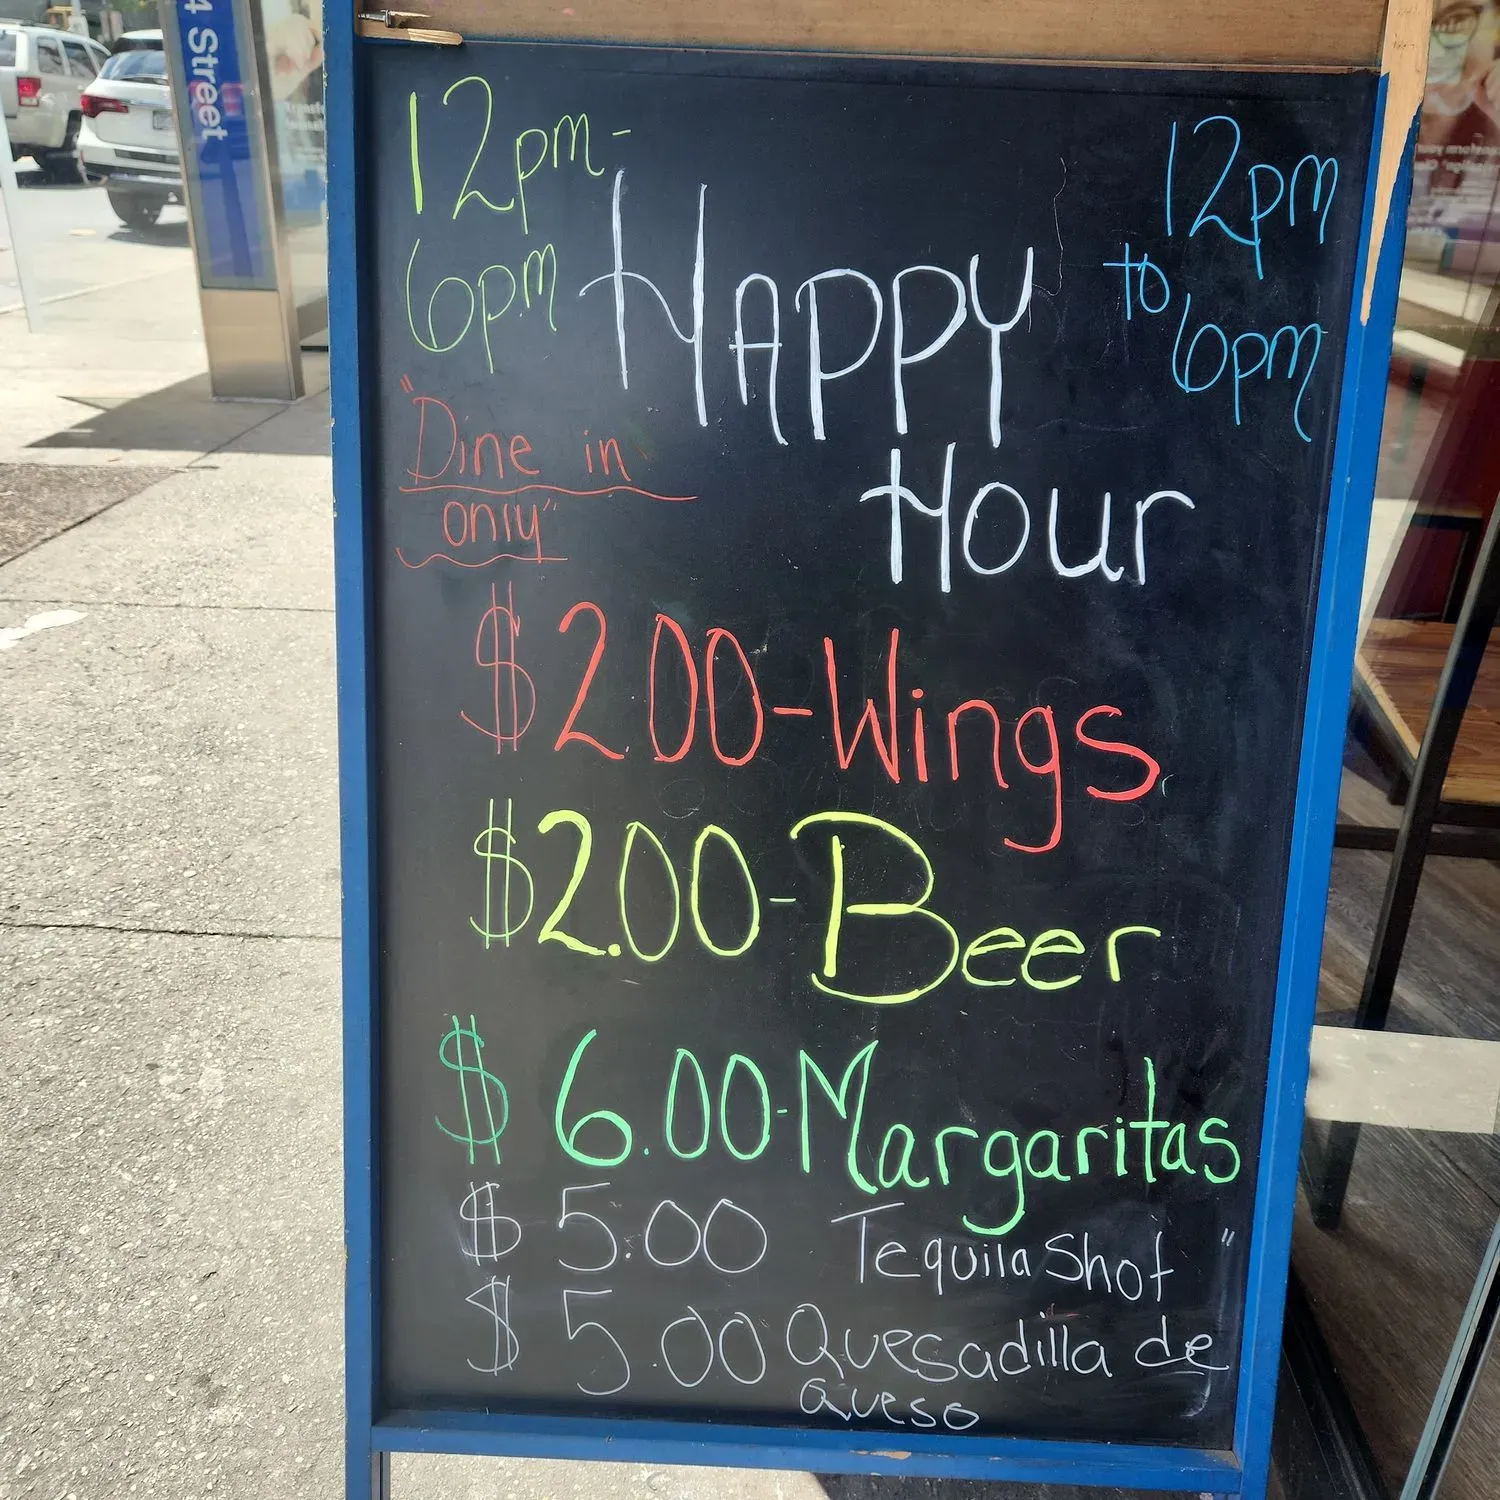 4 Street
12pm-
6pm
12pm
to
6pm
HAPPY
Hour
"Dine in
only"
$2.00-Wings
$2.00-Beer
$6.00-Margaritas
$5.00 Tequila Shot "
$5.00 Quesadilla de
queso